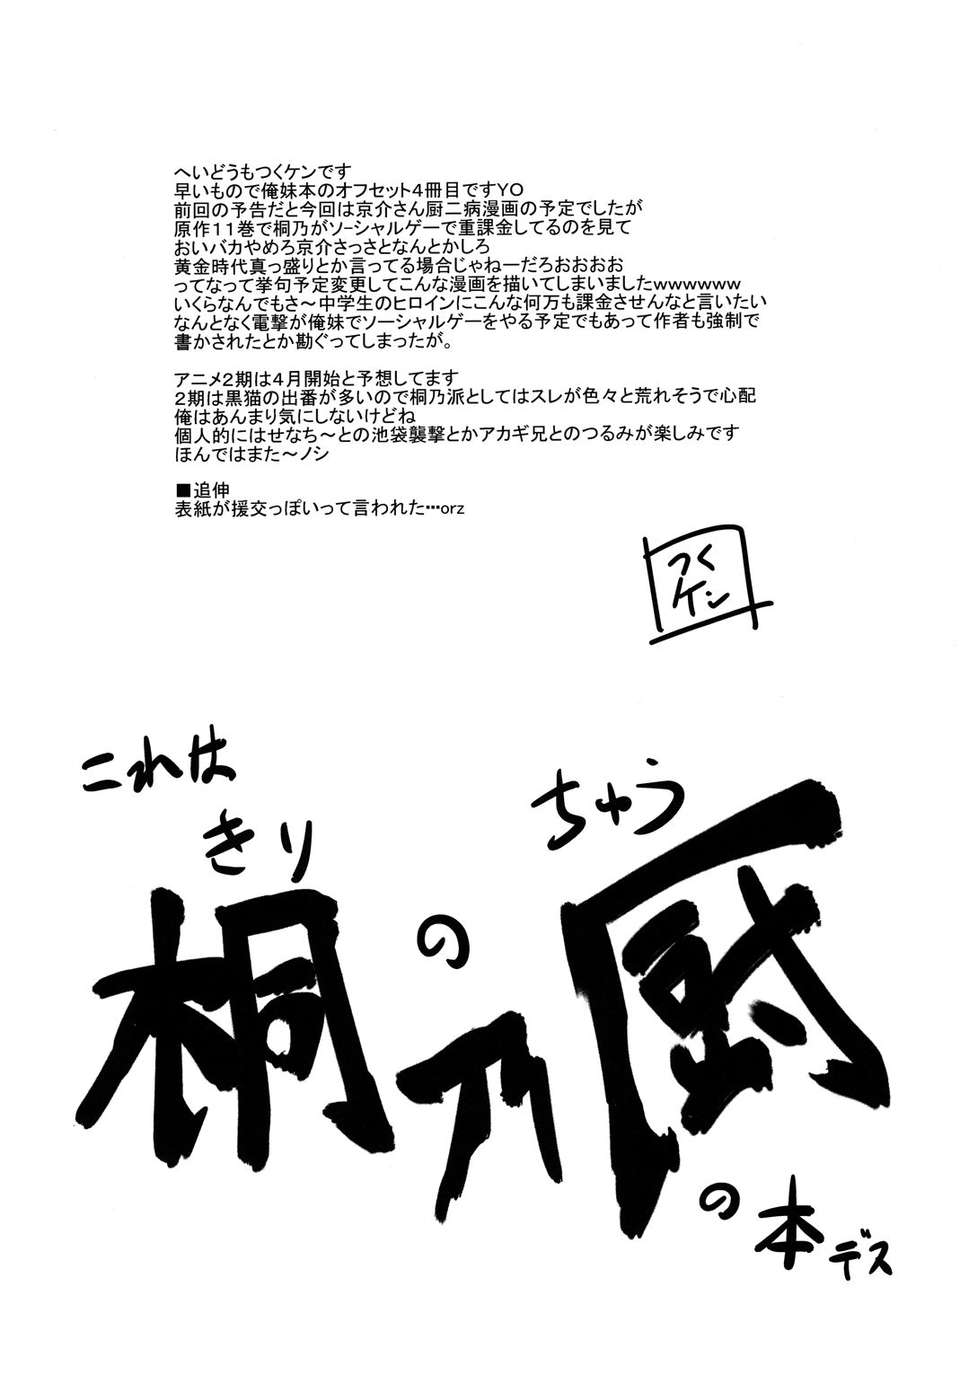 へいどうもつくケンです
早いもので俺妹本のオフセット4冊目ですYO
前回の予告だと今回は京介さん厨二病漫画の予定でしたが
原作11巻で桐乃がソーシャルゲーで重課金してるのを見て
おいバカやめろ京介さっさとなんとかしろ
黄金時代真っ盛りとか言ってる場合じゃねーだろおおおお
ってなって挙句予定変更してこんな漫画を描いてしまいましたwwwwww
いくらなんでもさ～中学生のヒロインにこんな何万も課金させんなと言いたい
なんとなく電撃が俺妹でソーシャルゲーをやる予定でもあって作者も強制で
書かされたとか勘ぐってしまったが。
アニメ2期は4月開始と予想してます
2期は黒猫の出番が多いので桐乃派としてはスレが色々と荒れそうで心配
俺はあんまり気にしないけどね
個人的にはせなち～との池袋襲撃とかアカギ兄とのつるみが楽しみです
ほんではまた～ノシ
■追伸
表紙が援交っぽいって言われた…orz
つく
ケン
これは
きり
の
ちゅう
桐乃厨
の本デス